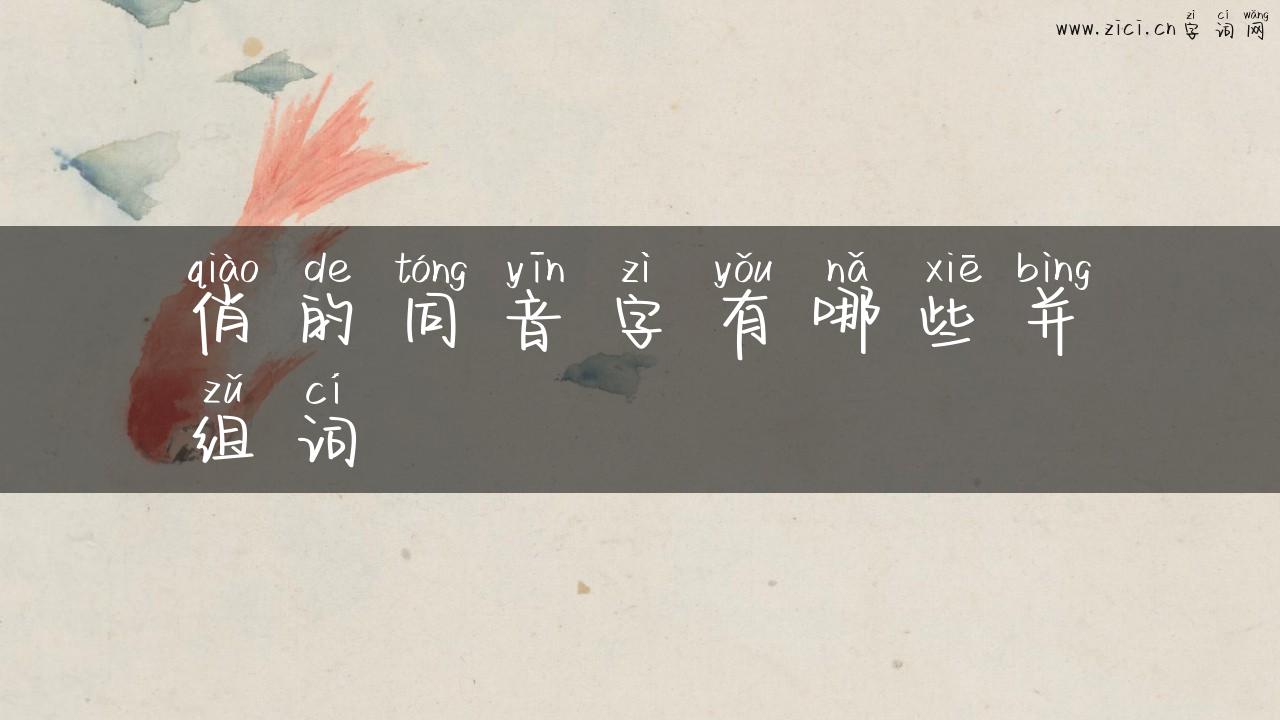 zì cí wǎng
www.zici.cn 字 词 网
qiào de tóng yīn zì yǒu nǎ xiē bìng
俏 的 同 音 字 有 哪 些 并
zǔ cí
组 词